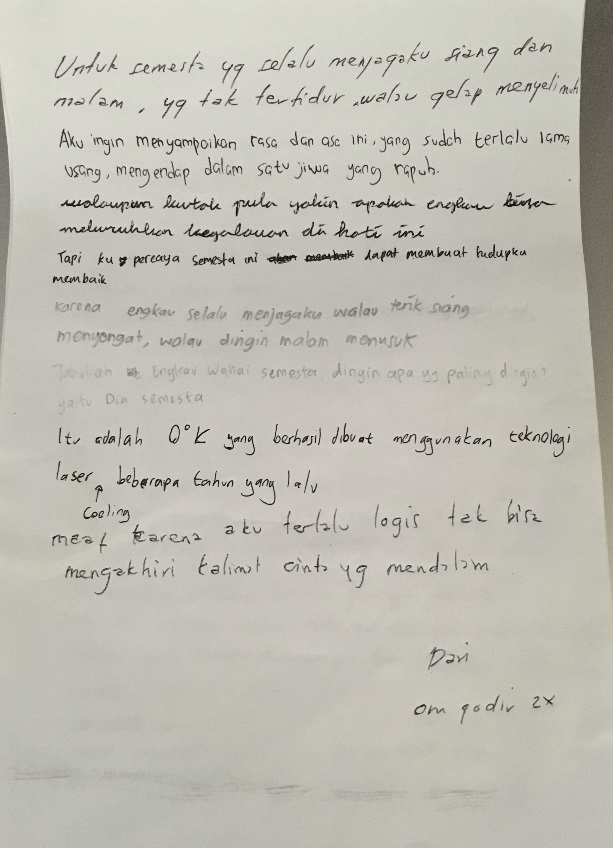 Untuk semesta yg selalu menjagaku siang dan
malam, yg tak tertidur walau gelap menyelimuti
Aku ingin menyampaikan rasa dan asa ini, yang sudah terlalu lama
usang, mengendap dalam satu jiwa yang rapuh.
walaupun kutak pula yakin apakah engkau bisa
meluruhkan kegalauan di hati ini
Tapi ku percaya semesta ini dapat membuat hidupku
membaik
Karena engkau selalu menjagaku walau terik siang
menyengat, walau dingin malam menusuk
Tahukah Engkau wahai semesta, dingin apa yg paling dingin?
yaitu semesta
Itu adalah 0°K yang berhasil dibuat menggunakan teknologi
laser beberapa tahun yang lalu
Cooling
maaf karena aku terlalu logis tak bisa
mengakhiri kalimat cinta yg mendalam
Dari
om qodir 2x